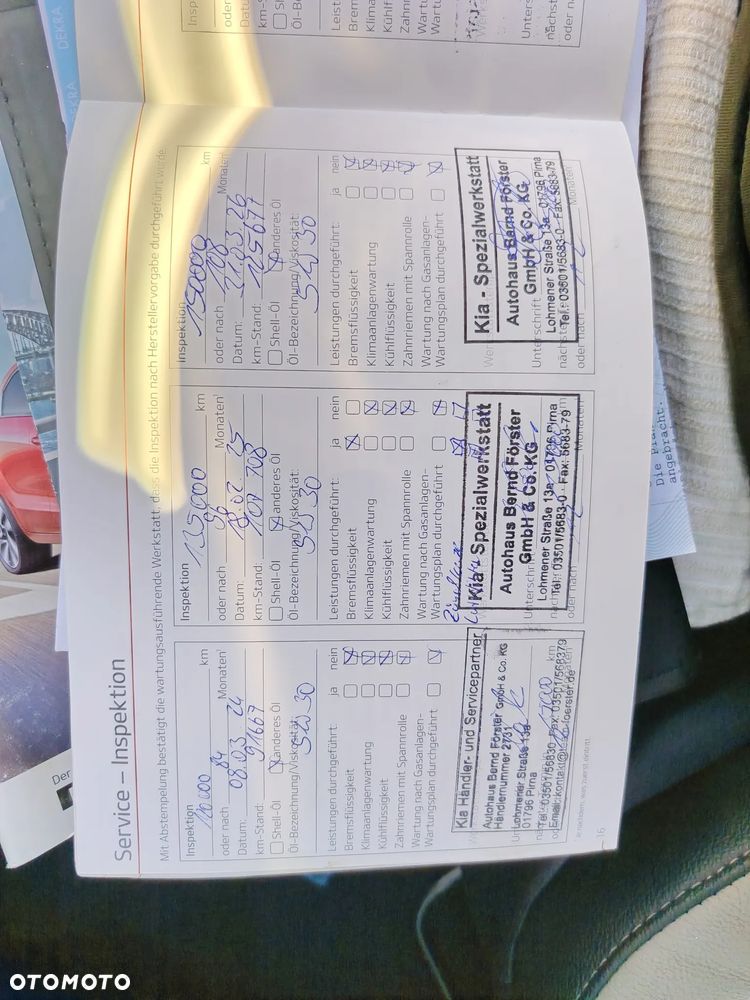 Service – Inspektion
Mit Abstempelung bestätigt die wartungsausführende Werkstatt, dass die Inspektion nach Herstellervorgabe durchgeführt wurde.
Inspektion
120000 km
oder nach 84 Monaten
Datum: 08.03 24
km-Stand: 91667
Shell-Öl anderes Öl
Öl-Bezeichnung/Viskosität:
5W30
Leistungen durchgeführt: ja nein
Bremsflüssigkeit
Klimaanlagenwartung
Kühlflüssigkeit
Zahnriemen mit Spannrolle
Wartung nach Gasanlagen-
Wartungsplan durchgeführt
Kia Händler- und Servicepartner
Autohaus Bernd Förster GmbH & Co. KG
Händlernummer 2731
Lohmener Straße 13a
01796 Pirna
16
Inspektion
135000 km
oder nach 96 Monaten
Datum: 18.02 25
km-Stand: 101 708
Shell-Öl anderes Öl
Öl-Bezeichnung/Viskosität:
5W30
Leistungen durchgeführt: ja nein
Bremsflüssigkeit
Klimaanlagenwartung
Kühlflüssigkeit
Zahnriemen mit Spannrolle
Wartung nach Gasanlagen-
Wartungsplan durchgeführt
Kia - Spezialwerkstatt
Autohaus Bernd Förster
GmbH & Co. KG
Lohmener Straße 13a · 01796 Pirna
Tel.: 03501/5683-0 · Fax: 5683-79
oder nach Monaten
Inspektion
150000 km
oder nach 108 Monaten
Datum: 31.03 26
km-Stand: 125677
Shell-Öl anderes Öl
Öl-Bezeichnung/Viskosität:
5W30
Leistungen durchgeführt: ja nein
Bremsflüssigkeit
Klimaanlagenwartung
Kühlflüssigkeit
Zahnriemen mit Spannrolle
Wartung nach Gasanlagen-
Wartungsplan durchgeführt
Kia - Spezialwerkstatt
Autohaus Bernd Förster
GmbH & Co. KG
Lohmener Straße 13a · 01796 Pirna
Tel.: 03501/5683-0 · Fax: 5683-79
oder nach Monaten
DEKRA
angebracht.
OTOMOTO